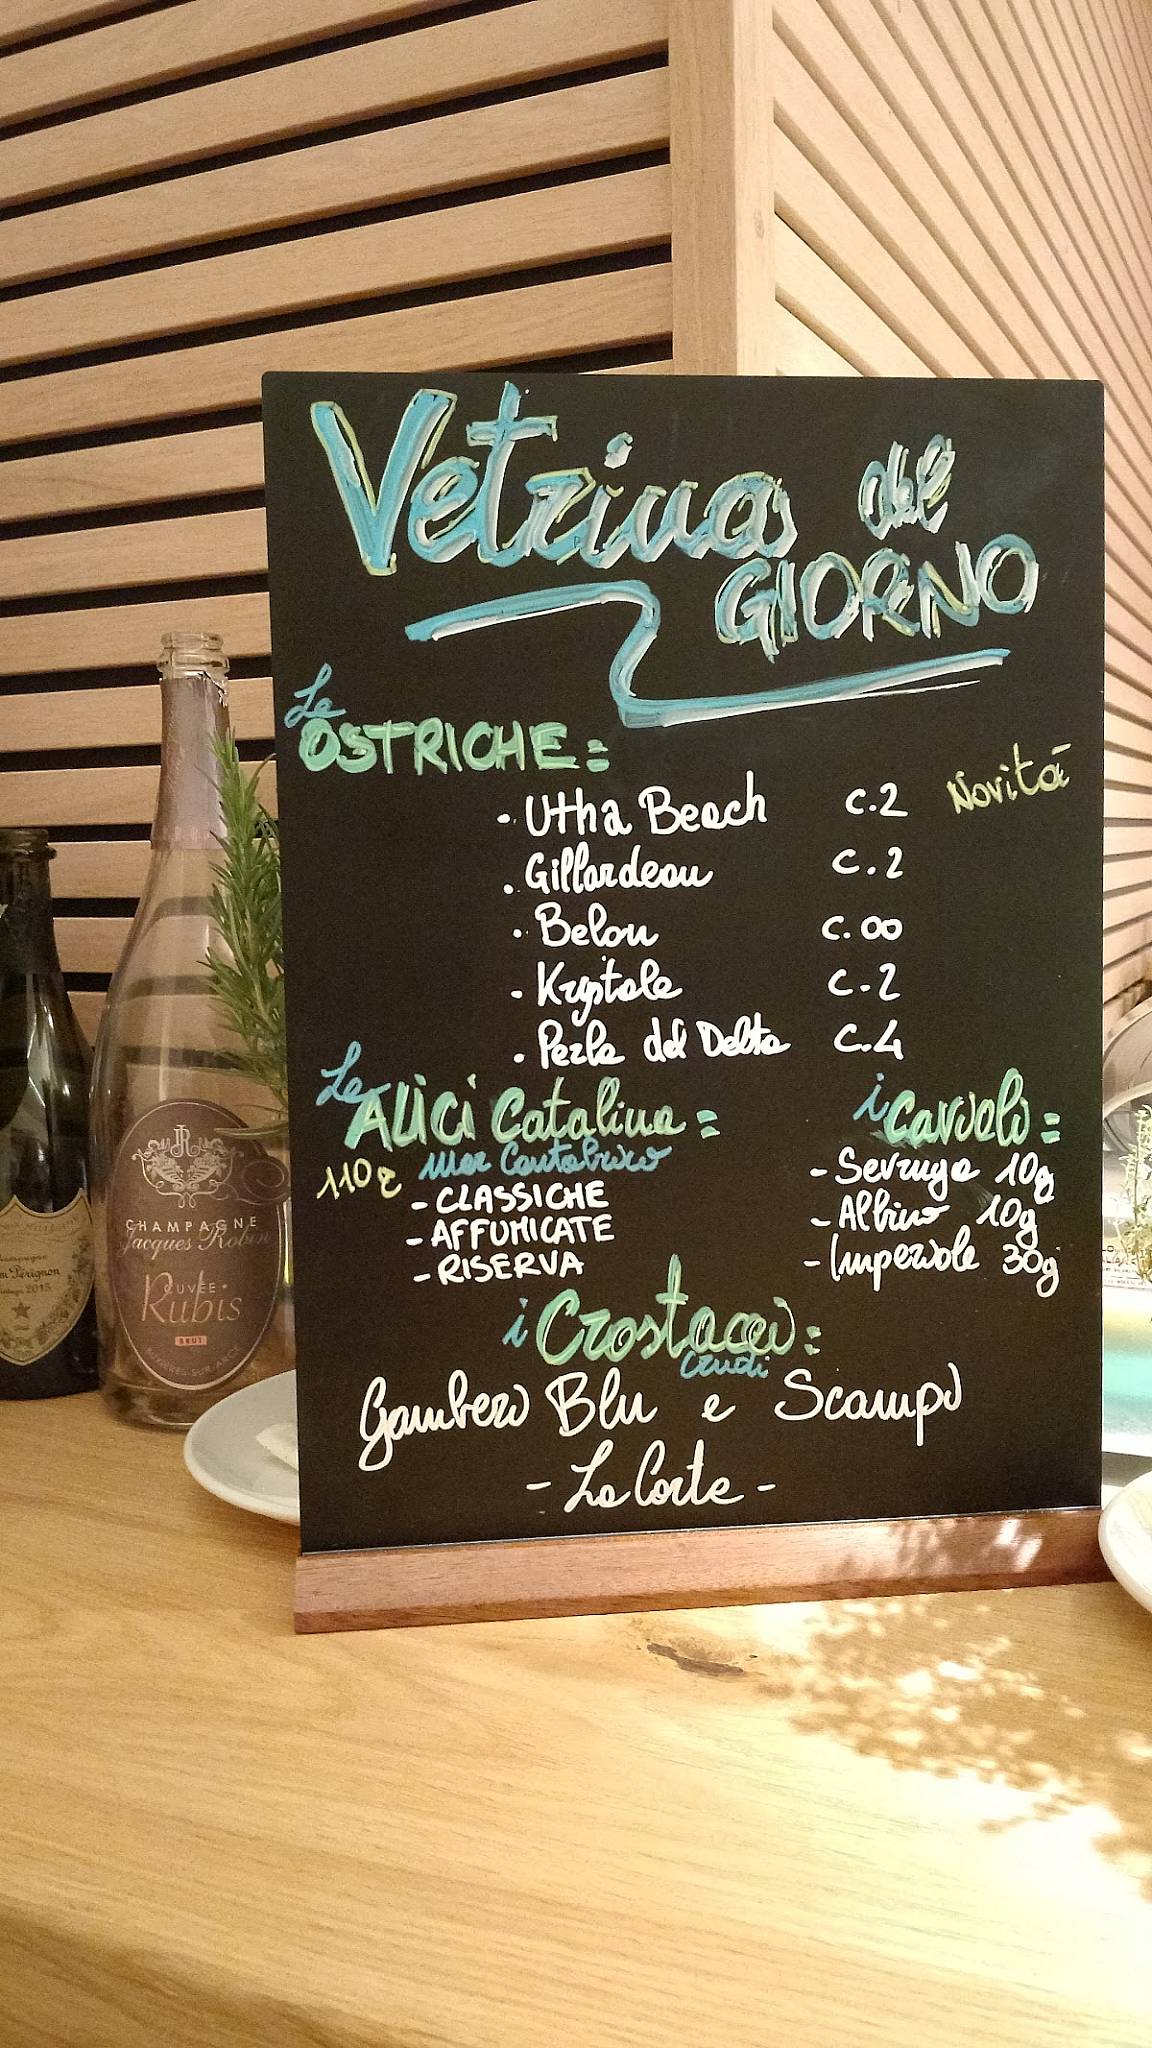 Vetrina del
GIORNO
Le
OSTRICHE =
- Utha Beach C.2 Novità
. Gillardeau C.2
. Belon C.00
. Krystale C.2
. Perla del Delta C.4
Le
ALICI Catalina =
110g mar Cantabrico
- CLASSICHE
- AFFUMICATE
- RISERVA
i caviali =
- Sevruga 10g
- Albino 10g
- Imperiale 30g
i Crostacei :
crudi
Gambero Blu e Scampo
- La Corte -
JR
CHAMPAGNE
Jacques Robin
CUVÉE
Rubis
BRUT
Champagne
m Pérignon
Vintage 2015